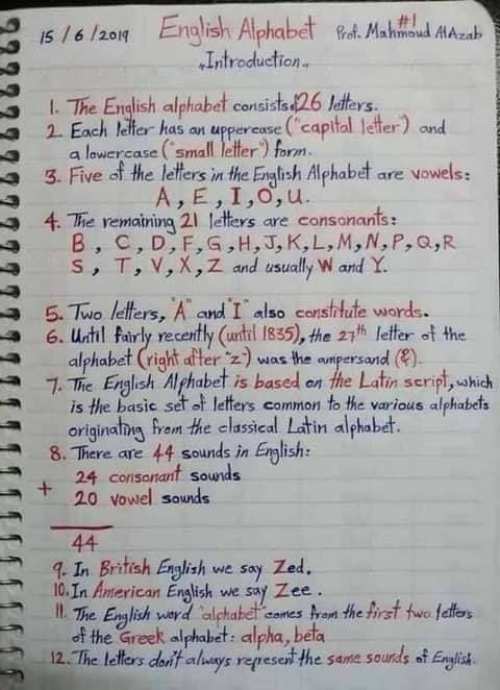 15 / 6 / 2019 English Alphabet #1 Prof. Mahmoud AlAzab
"Introduction"
1. The English alphabet consists of 26 letters.
2. Each letter has an uppercase ("capital letter") and
a lowercase ("small letter") form.
3. Five of the letters in the English Alphabet are vowels:
A , E , I , O , U.
4. The remaining 21 letters are consonants:
B , C , D , F , G , H , J , K , L , M , N , P , Q , R
S , T , V , X , Z and usually W and Y.
5. Two letters, "A" and "I" also constitute words.
6. Until fairly recently (until 1835), the 27th letter of the
alphabet (right after "z") was the ampersand (&).
7. The English Alphabet is based on the Latin script, which
is the basic set of letters common to the various alphabets
originating from the classical Latin alphabet.
8. There are 44 sounds in English:
24 consonant sounds
+ 20 vowel sounds
44
9. In British English we say Zed.
10. In American English we say Zee .
11. The English word "alphabet" comes from the first two letters
of the Greek alphabet: alpha, beta
12. The letters don't always represent the same sounds of English.